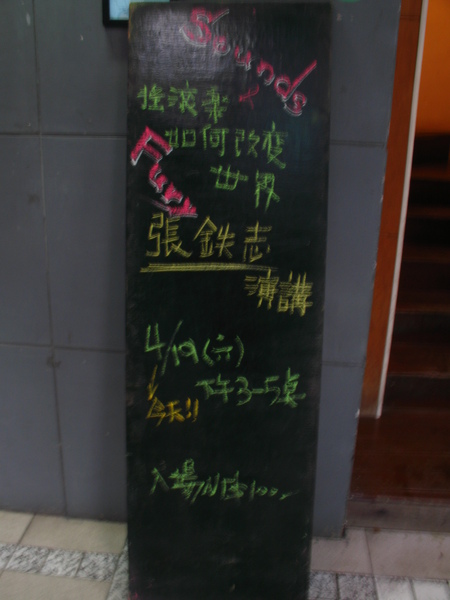 Sounds
X
Fury
搖滾樂
如何改变
世界
張鉄志
演講
4/19(六)
下午3-5點
今天!!
入場NT$100-